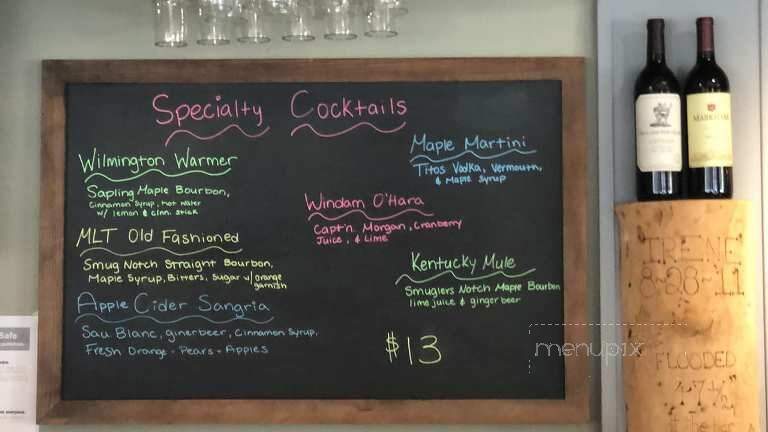 Specialty Cocktails
Wilmington Warmer
Sapling Maple Bourbon,
Cinnamon Syrup, hot water
w/ lemon & cinn. stick
MLT Old Fashioned
Smug Notch Straight Bourbon,
Maple Syrup, Bitters, Sugar w/ orange
garnish
Apple Cider Sangria
Sau Blanc, ginerbeer, Cinnamon Syrup,
Fresh Orange - Pears - Apples
Windam O'Hara
Capt'n Morgan, Cranberry
Juice, & Lime
Maple Martini
Titos Vodka, Vermouth,
& Maple Syrup
Kentucky Mule
Smuglers Notch Maple Bourbon
lime juice & ginger beer
$13
menupix
IRENE
8-28-11
FLOODED
47 1/2"
Safe